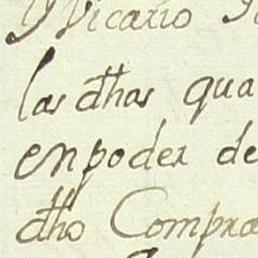 Vicario
las dhas qua
en poder de
dho Compra